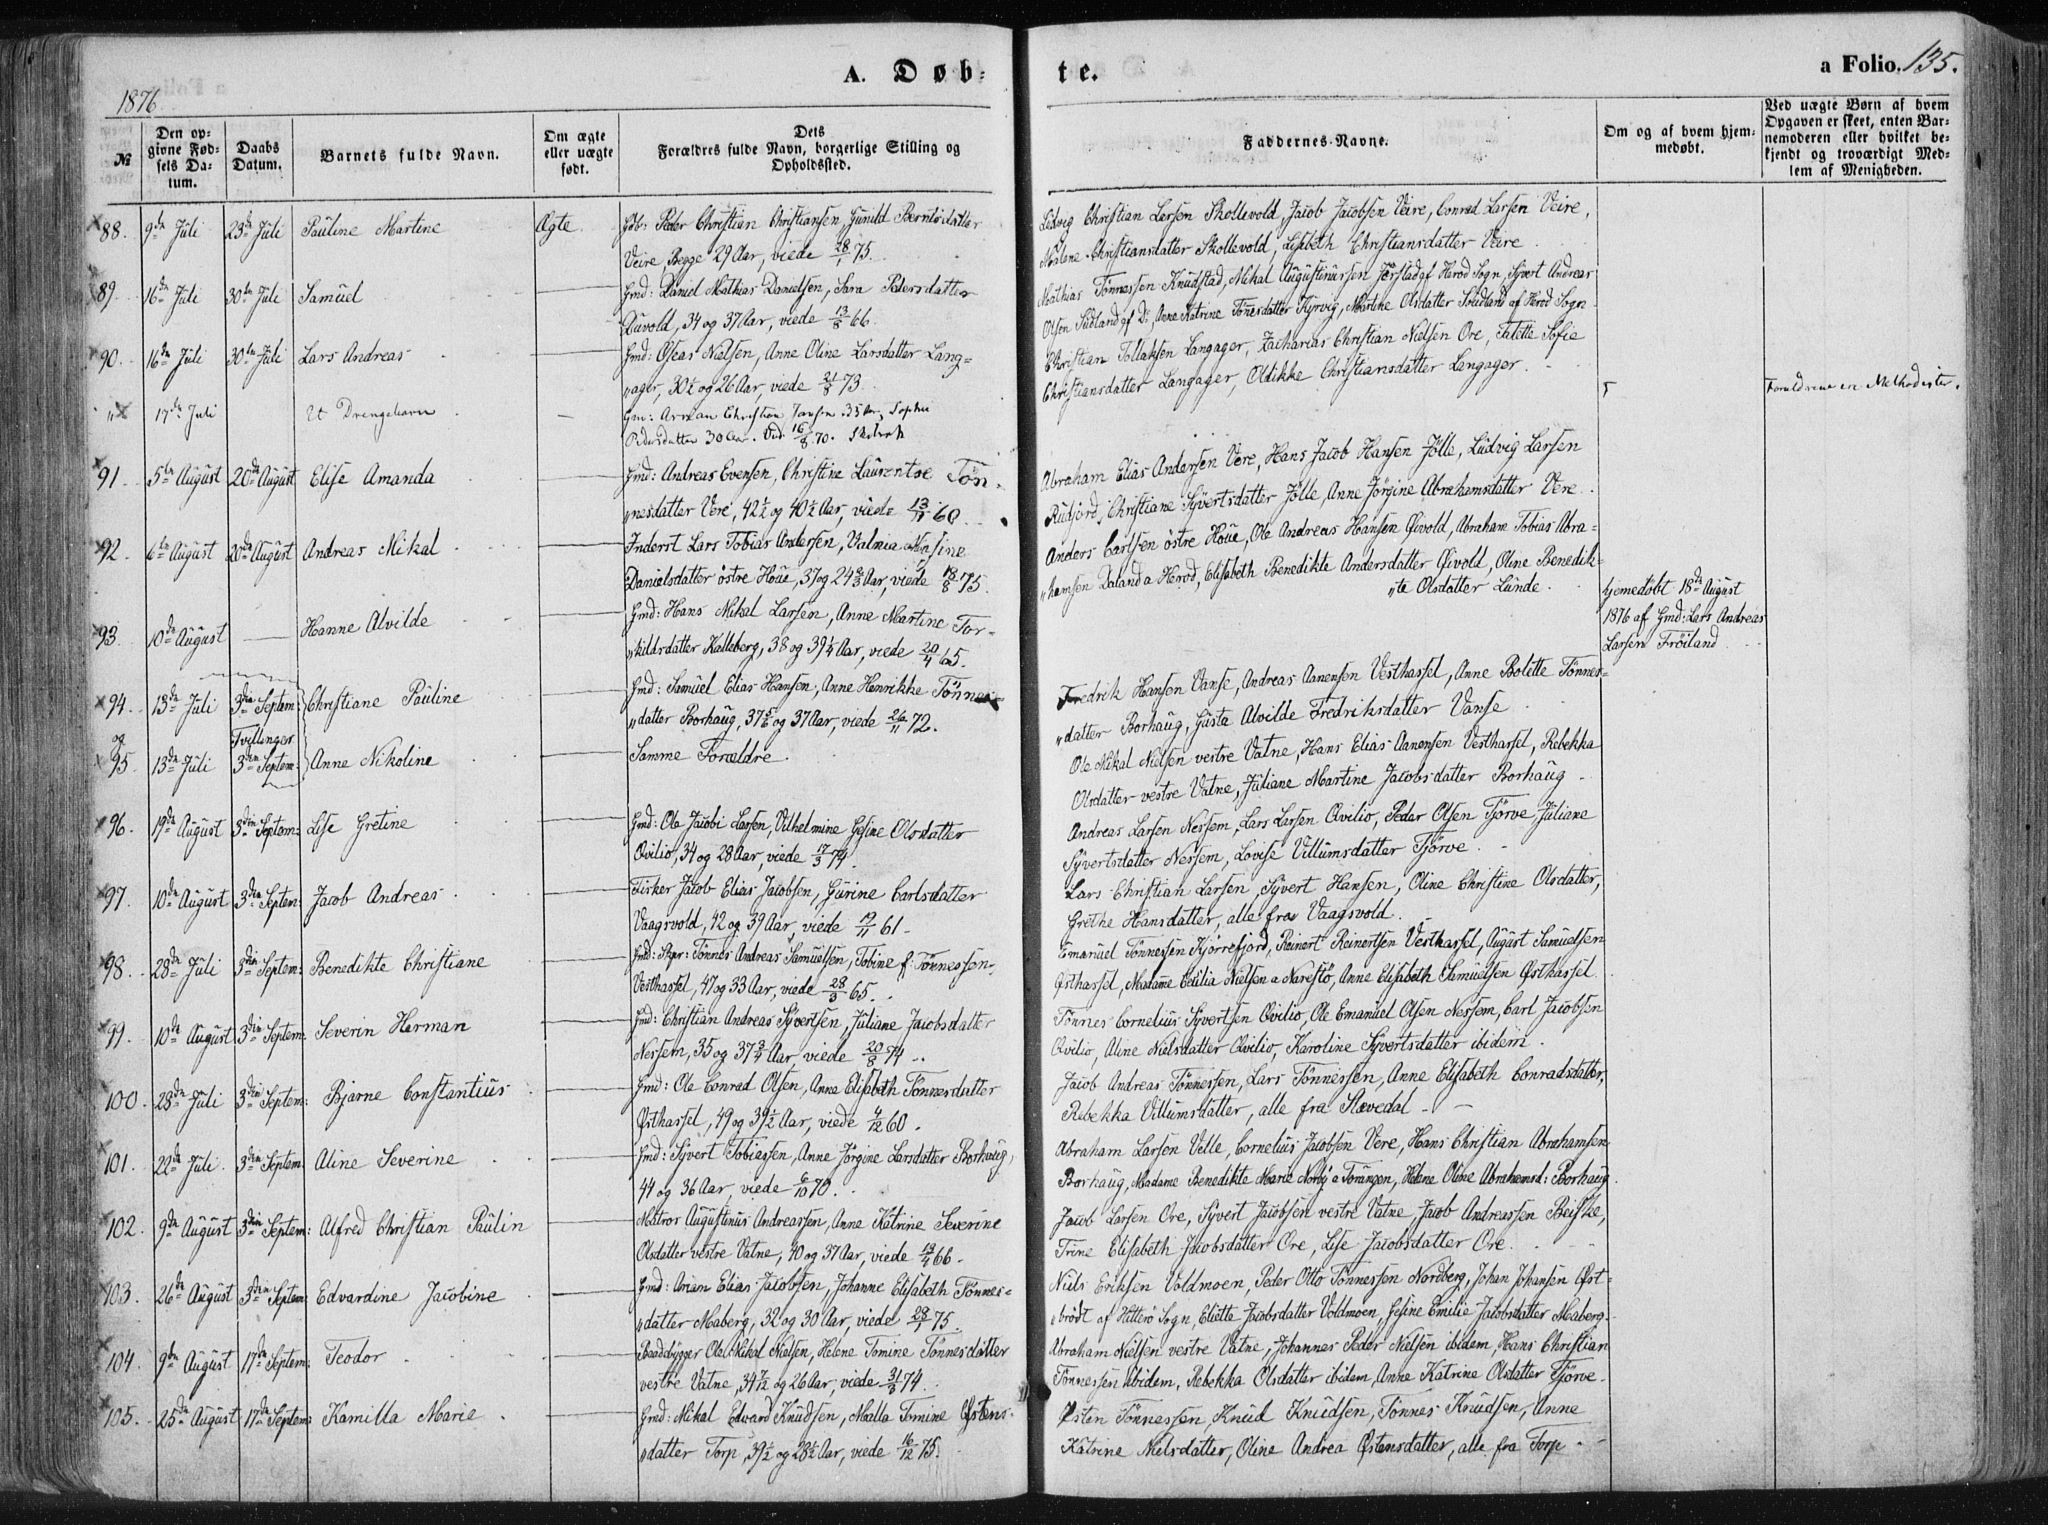 A. Døb-
te.
a Folio. 135.
1876
№
Den opgivne Fødsels Datum.
Daabs Datum.
Barnets fulde Navn.
Om ægte eller uægte født.
Dets Forældres fulde Navn, borgerlige Stilling og Opholdssted.
Faddernes-Navne.
Om og af hvem hjemmedøbt.
Ved uægte Børn af hvem Opgaven er skeet, enten Barnemoderen eller hvilket bekjendt og troværdigt Medlem af Menigheden.
88. 9de Juli 23de Juli Pauline Martine Ægte Peder Christian Christiansen, Gunild Berntsdatter
Veire Begge 29 Aar, viede 28/1 75.
Ludvig Christian Larsen Skollevold, Jacob Jacobsen Veire, Conrad Larsen Veire,
Malene Christiansdatter Skollevold, Lisabeth Christiansdatter Veire
89. 16de Juli 30te Juli Samuel Gmd: Daniel Mathias Danielsen, Sara Pedersdatter
Duvold, 34 og 37 Aar, viede 13/8 66.
Mathias Tønnessen Knudstad, Mikal Augustinussen Jørstad af Herod Sogn, Syvert Andreas
Olsen Sudland af Do, Anne Katrine Tønesdatter Kjørvig, Martine Olsdatter Sudland af Herod Sogn
90. 16de Juli 30te Juli Lars Andreas Gmd: Oseas Nielsen, Anne Oline Larsdatter Lang-
„ager, 30½ og 26 Aar, viede 21/8 73.
Christian Tollaksen Langager, Zacharias Christian Nielsen Ore, Talette Sofie
Christiansdatter Langager, Oldikke Christiansdatter Langager.
" 17de Juli Et Drengebarn Gm: Arnian Christian Jansen 35 Aar, Sophie
Pedersdatter 30 Aar. Vied. 16/8 70.
Forældrene er Methodister.
91. 5te August 20de August Elise Amanda Gmd: Andreas Evensen, Christine Laurentse Tøn-
„nesdatter Vere, 42½ og 40½ Aar, viede 13/11 60.
Abraham Elias Andersen Vere, Hans Jacob Hansen Jølle, Ludvig Larsen
Rudjord, Christiane Syvertsdatter Jølle, Anne Jørgine Abrahamsdatter Vere.
92. 6te August 20de August Andreas Mikal Inderst Lars Tobias Andersen, Valmia Masine
Danielsdatter østre Houe, 37 og 24 Aar, viede 18/8 75.
Anders Carlsen østre Houe, Ole Andreas Hansen Øivold, Abraham Tobias Abra-
„hamsen Daland a Herod, Elisabeth Benedikte Andersdatter Øivold, Oline Benedik-
„te Olsdatter Lunde.
93. 10de August Hanne Alvilde Gmd: Hans Mikal Larsen, Anne Martine Tor-
„kildsdatter Kalleberg, 38 og 39¼ Aar, viede 20/4 65.
Hjemedøbt 18de August
1876 af Gmd: Lars Andreas
Larsen Frøiland
94. 13de Juli 3die Septem: Christiane Pauline Gmd: Samuel Elias Hansen, Anne Henrikke Tønnes-
„datter Borhaug, 37 og 37 Aar, viede 26/11 72.
Fredrik Hansen Vanse, Andreas Aanensen Vesthassel, Anne Bolette Tønnes-
„datter Borhaug, Gusta Alvilde Fredriksdatter Vanse
og Tvillinger
95. 13de Juli 3die Septem: Anne Nikoline Samme Forældre.
Ole Mikal Nielsen vestre Vatne, Hans Elias Aanensen Vesthassel, Rebekka
Olsdatter vestre Vatne, Juliane Martine Jacobsdatter Borhaug
96. 19de August 3die Septem: Lise Gretine Gmd: Ole Jacobi Larsen, Vilhelmine Gesine Olsdatter
Qvilio, 34 og 28 Aar, viede 17/3 74.
Andreas Larsen Nessem, Lars Larsen Qvilio, Peder Olsen Tjørve, Juliane
Syvertsdatter Nessem, Lovise Villumsdatter Tjørve.
97. 10de August 3die Septem: Jacob Andreas Fisker Jacob Elias Jacobsen, Gurine Carlsdatter
Vaagsvold, 42 og 39 Aar, viede 19/11 61.
Lars Christian Larsen, Syvert Hansen, Oline Christine Olsdatter,
Grethe Hansdatter, alle fra Vaagsvold.
98. 28de Juli 3die Septem: Benedikte Christiane Gmd: Skpr: Tønnes Andreas Samuelsen, Tobine f: Tønnessen
Vesthassel, 47 og 33 Aar, viede 28/3 65.
Emanuel Tønnessen Kjørrefjord, Reinert Reinertsen Vesthassel, August Samuelsen
Østhassel, Madame Cecilia Nielsen a Narestø, Anne Elisabeth Samuelsen Østhassel.
99. 10de August 3die Septem: Severin Herman Gmd: Christian Andreas Syvertsen, Juliane Jacobsdatter
Nessem, 35 og 37¾ Aar, viede 20/8 74.
Tønnes Cornelius Syvertsen Qvilio, Ole Emanuel Olsen Nessem, Carl Jacobsen
Qvilio, Aline Nielsdatter Qvilio, Karoline Syvertsdatter ibidem.
100. 28de Juli 3die Septem: Bjarne Constantius Gmd: Ole Conrad Olsen, Anne Elisabeth Tønnesdatter
Østhassel, 49 og 39½ Aar, viede 4/12 60.
Jacob Andreas Tønnessen, Lars Tønnessen, Anne Elisabeth Conradsdatter,
Rebekka Villumsdatter, alle fra Stavedal
101. 22de Juli 3die Septem: Aline Severine Gmd: Syvert Tobiassen, Anne Jørgine Larsdatter Borhaug,
44 og 36 Aar, viede 6/10 70.
Abraham Larsen Velle, Cornelius Jacobsen Vere, Hans Christian Abrahamsen
Borhaug, Madame Benedikte Marie Norby a Torangen, Helene Oline Abrahamsd: Borhaug.
102. 9de August 3die Septem: Alfred Christian Paulin Matros Augustinus Andreassen, Anne Katrine Severine
Olsdatter vestre Vatne, 40 og 37 Aar, viede 13/4 66.
Jacob Larsen Ore, Syvert Jacobsen vestre Vatne, Jacob Andreassen Beiske,
Trine Elisabeth Jacobsdatter Ore, Lise Jacobsdatter Ore.
103. 26de August 3die Septem: Edvardine Jacobine Gmd: Arian Elias Jacobsen, Johanne Elisabeth Tønnes-
„datter Maberg, 32 og 30 Aar, viede 28/1 75.
Niels Eriksen Voldmoen, Peder Otto Tønnessen Nordberg, Johan Johansen Øst-
„brødt af Hitterø Sogn, Eliette Jacobsdatter Voldmoen, Gesine Emilie Jacobsdatter Maberg.
104. 9de August 17de Septem: Teodor Baadbygger Ole Mikal Nielsen, Helene Tomine Tønnesdatter
vestre Vatne, 34 7/12 og 26 Aar, viede 31/3 74.
Abraham Nielsen vestre Vatne, Johannes Peder Nielsen ibidem, Hans Christian
Tønnessen ibidem, Rebekka Olsdatter ibidem, Anne Katrine Olsdatter Tjørve.
105. 25de August 17de Septem: Kamilla Marie Gmd: Mikal Edvard Knudsen, Malla Tomine Østens-
„datter Torp, 39½ og 28½ Aar, viede 16/12 75.
Østen Tønnessen, Knud Knudsen, Tønnes Knudsen, Anne
Katrine Nielsdatter, Oline Andrea Østensdatter, alle fra Torp